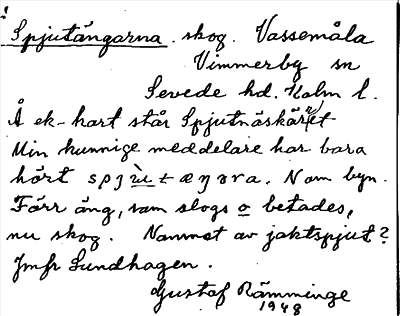 Spjutängarna. skog. Vassemåla
Vimmerby sn
Sevede hd. Kalm l.
Å ek-kart står Spjutnäskäret
Min kunnige meddelare har bara
hört spjùtæŋəra. Namn byn.
Förr äng, som slogs o betades,
nu skog. Namnet av jaktspjut?
Jmfr Lundhagen.
Gustaf Rämminge
1948